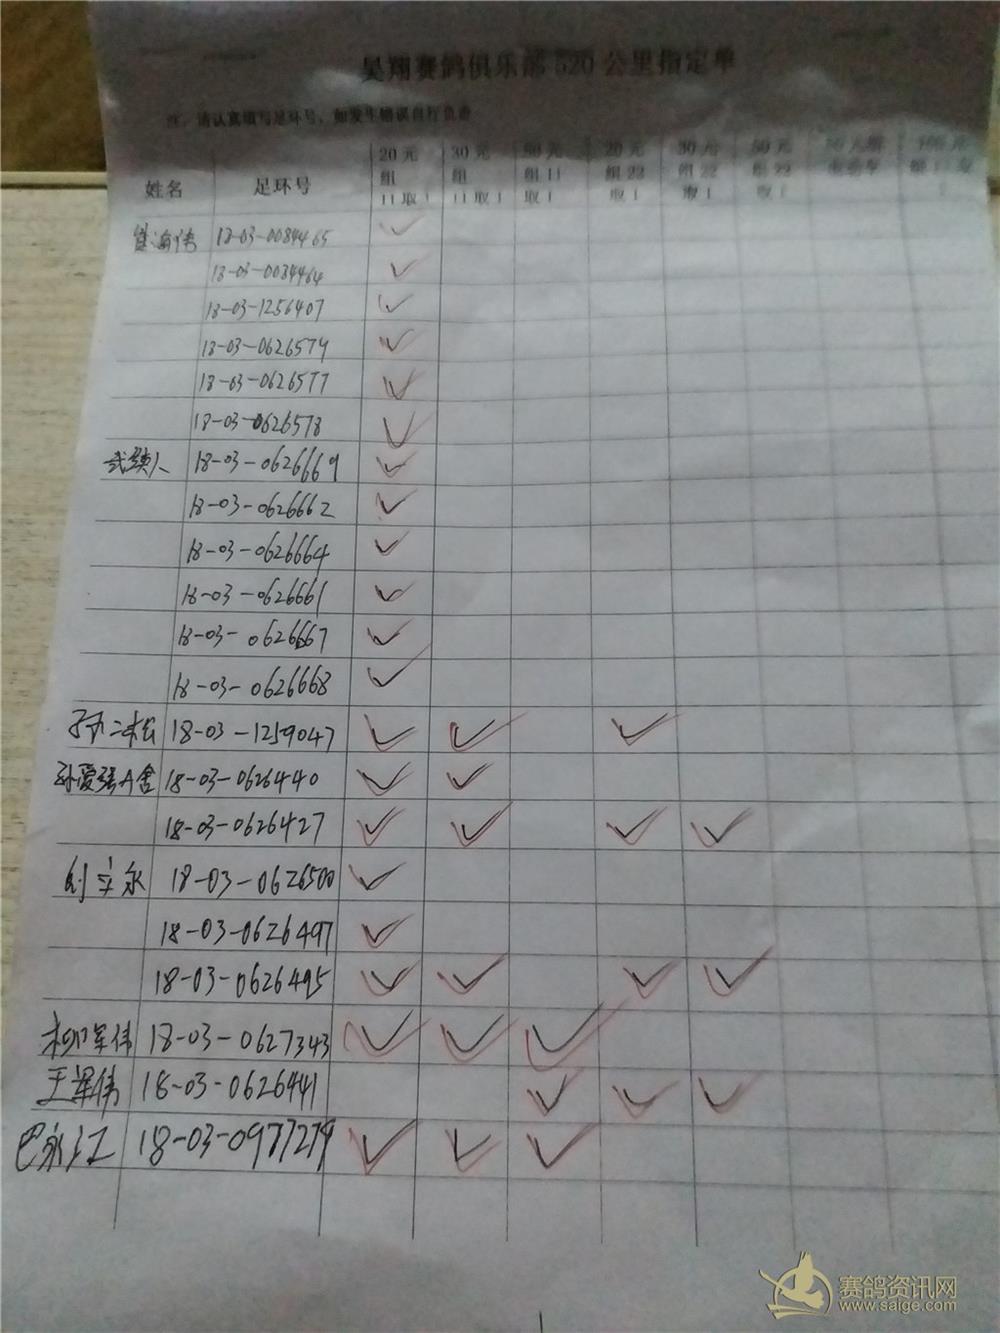 昊翔赛鸽俱乐部520公里指定单
注：请认真填写足环号，如发生错误自行负责
姓名 足环号 20元组11取1 30元组11取1 50元组11取1 20元组22取1 30元组22取1 50元组22取1
18-03-0084465 ✓
18-03-0084464 ✓
18-03-1256407 ✓
18-03-0626579 ✓
18-03-0626577 ✓
18-03-0626578 ✓
18-03-0626669 ✓
18-03-0626662 ✓
18-03-0626664 ✓
18-03-0626661 ✓
18-03-0626667 ✓
18-03-0626668 ✓
孙二松 18-03-1259047 ✓ ✓ ✓
孙爱强A舍 18-03-0626440 ✓ ✓
18-03-0626427 ✓ ✓ ✓ ✓
刘立永 18-03-0626500 ✓
18-03-0626497 ✓
18-03-0626495 ✓ ✓ ✓ ✓
柳军伟 18-03-0627343 ✓ ✓ ✓
18-03-0626441 ✓ ✓ ✓
巴永江 18-03-0977279 ✓ ✓ ✓
赛鸽资讯网
www.saige.com